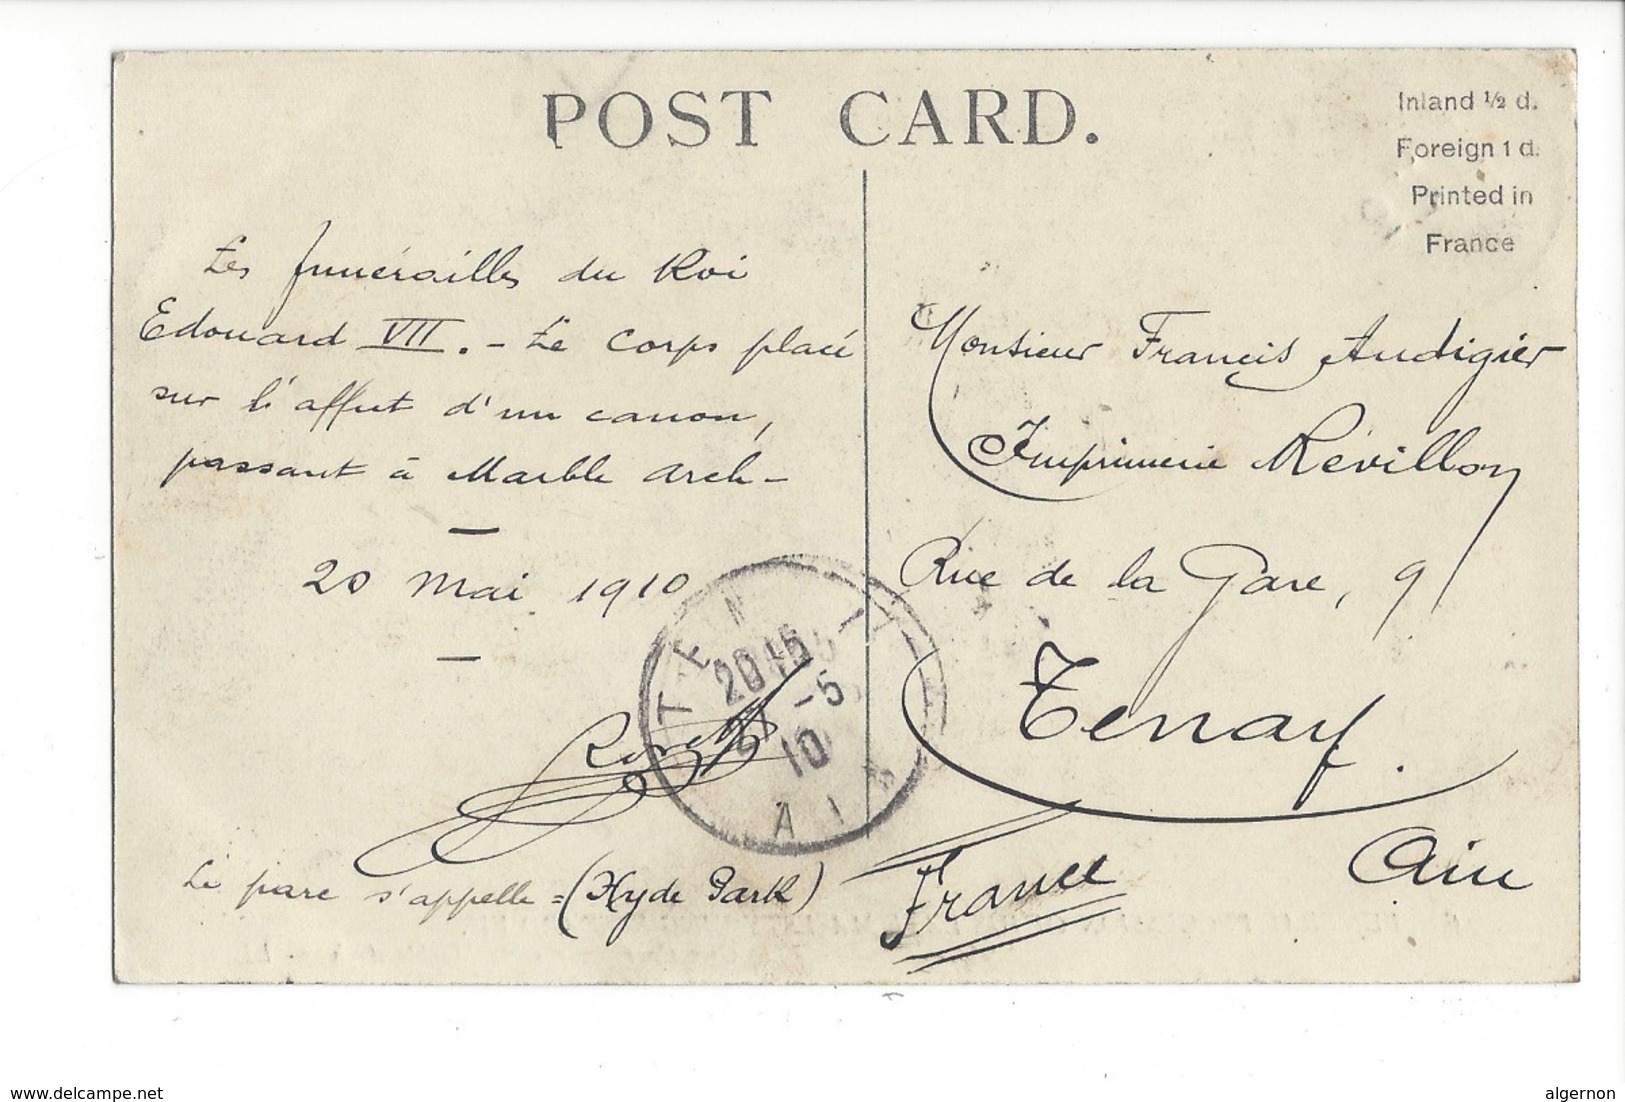 POST CARD.
Inland ½ d.
Foreign 1 d.
Printed in
France
Les funérailles du Roi
Edouard VII. - Le corps placé
sur l'affut d'un canon,
passant à Marble Arch -
20 Mai 1910
Le parc s'appelle = (Hyde Park)
Monsieur Francis Audigier
Imprimerie Révillon
Rue de la Gare, 9
Tenay.
Ain
France
TENAY
-5
10
AIN
www.delcampe.net
algernon